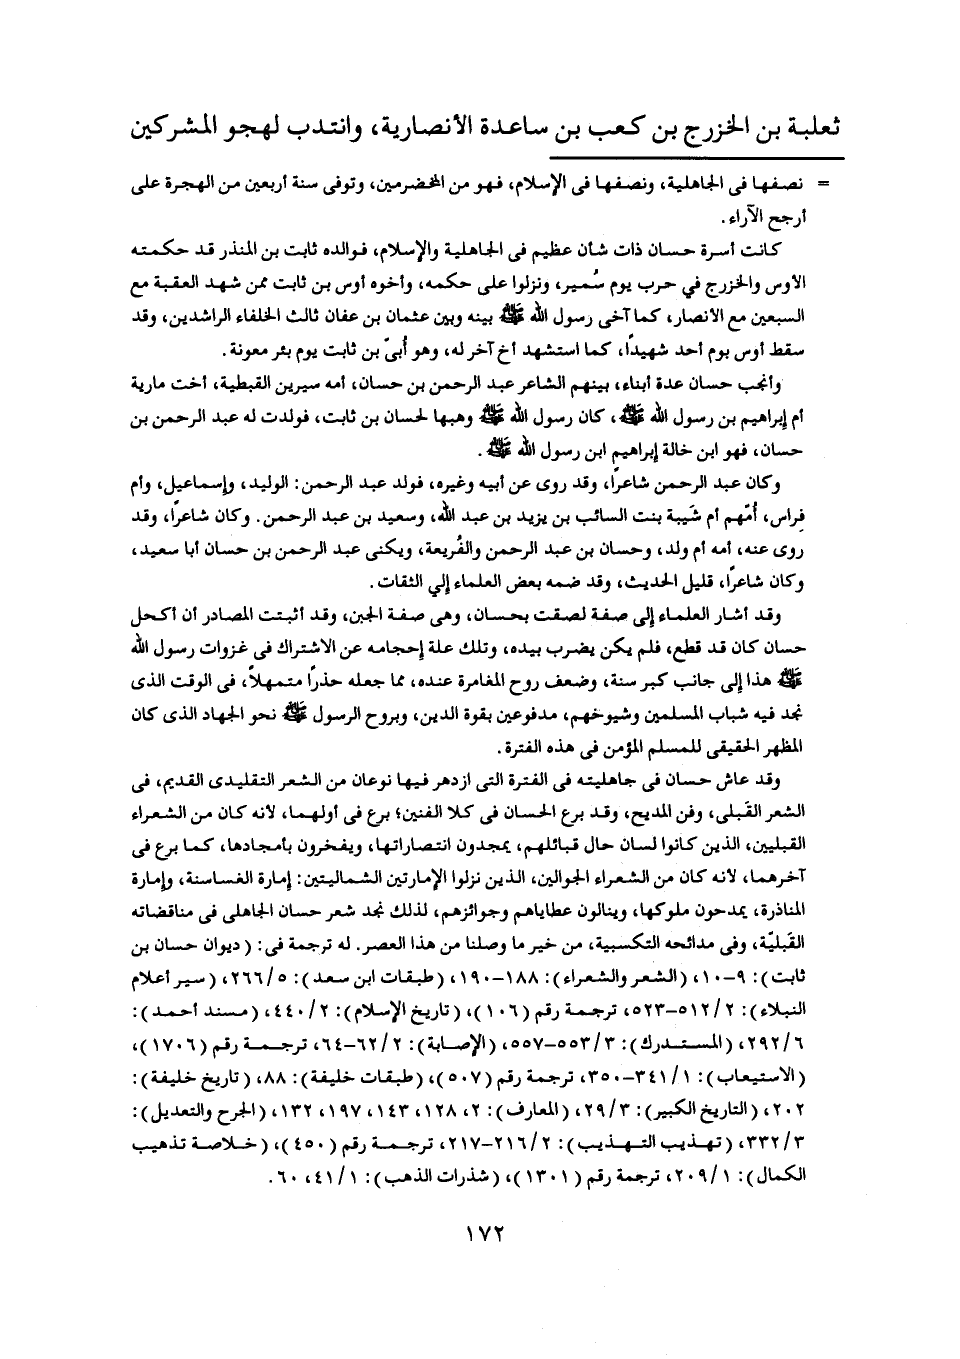 ثعلبة بن الخزرج بن كعب بن ساعدة الأنصارية، وانتدب لهجو المشركين
= نصفها فى الجاهلية، ونصفها فى الإسلام، فهو من المخضرمين، وتوفى سنة أربعين من الهجرة على
أرجح الآراء.
كانت أسرة حسان ذات شأن عظيم فى الجاهلية والإسلام، فوالده ثابت بن المنذر قد حكمته
الأوس والخزرج في حرب يوم سُمير، ونزلوا على حكمه، وأخوه أوس بن ثابت ممن شهد العقبة مع
السبعين مع الأنصار، كما آخى رسول الله ﷺ بينه وبين عثمان بن عفان ثالث الخلفاء الراشدين، وقد
سقط أوس يوم أحد شهيداً، كما استشهد أخ آخر له، وهو أُبىّ بن ثابت يوم بئر معونة.
وأنجب حسان عدة أبناء، بينهم الشاعر عبد الرحمن بن حسان، أمه سيرين القبطية، أخت مارية
أم إبراهيم بن رسول الله ﷺ، كان رسول الله ﷺ وهبها لحسان بن ثابت، فولدت له عبد الرحمن بن
حسان، فهو ابن خالة إبراهيم ابن رسول الله ﷺ.
وكان عبد الرحمن شاعراً، وقد روى عن أبيه وغيره، فولد عبد الرحمن: الوليد، وإسماعيل، وأم
فراس، أُمّهم أم شَيبة بنت السائب بن يزيد بن عبد الله، وسعيد بن عبد الرحمن. وكان شاعراً، وقد
روى عنه، أمه أم ولد، وحسان بن عبد الرحمن والفُريعة، ويكنى عبد الرحمن بن حسان أبا سعيد،
وكان شاعراً، قليل الحديث، وقد ضمه بعض العلماء إلي الثقات.
وقد أشار العلماء إلى صفة لصقت بحسان، وهى صفة الجبن، وقد أثبتت المصادر أن أكحل
حسان كان قد قطع، فلم يكن يضرب بيده، وتلك علة إحجامه عن الاشتراك فى غزوات رسول الله
ﷺ هذا إلى جانب كبر سنة، وضعف روح المغامرة عنده، مما جعله حذراً متمهلاً، فى الوقت الذى
نجد فيه شباب المسلمين وشيوخهم، مدفوعين بقوة الدين، وبروح الرسول ﷺ نحو الجهاد الذى كان
المظهر الحقيقى للمسلم المؤمن فى هذه الفترة.
وقد عاش حسان فى جاهليته فى الفترة التى ازدهر فيها نوعان من الشعر التقليدى القديم، فى
الشعر القَبلى، وفن المديح، وقد برع الحسان فى كلا الفنين؛ برع فى أولهما، لأنه كان من الشعراء
القبليين، الذين كانوا لسان حال قبائلهم، يمجدون انتصاراتها، ويفخرون بأمجادها، كما برع فى
آخرهما، لأنه كان من الشعراء الجوالين، الذين نزلوا الإمارتين الشماليتين: إمارة الغساسنة، وإمارة
المناذرة، يمدحون ملوكها، وينالون عطاياهم وجوائزهم، لذلك نجد شعر حسان الجاهلى فى مناقضاته
القَبليّة، وفى مدائحه التكسبية، من خير ما وصلنا من هذا العصر. له ترجمة فى: (ديوان حسان بن
ثابت): ٩-١٠، (الشعر والشعراء): ١٨٨-١٩٠، (طبقات ابن سعد): ٢٦٦/٥، (سير أعلام
النبلاء): ٥١٢/٢-٥٢٣، ترجمة رقم (١٠٦)، (تاريخ الإسلام): ٤٤٠/٢، (مسند أحمد):
٢٩٢/٦، (المستدرك): ٥٥٣/٣-٥٥٧، (الإصابة): ٦٢/٢-٦٤، ترجمة رقم (١٧٠٦)،
(الاستيعاب): ٣٤١/١-٣٥٠، ترجمة رقم (٥٠٧)، (طبقات خليفة): ٨٨، (تاريخ خليفة):
٢٠٢، (التاريخ الكبير): ٢٩/٣، (المعارف): ٢، ١٢٨، ١٤٣، ١٩٧، ١٣٢، (الجرح والتعديل):
٣٣٢/٣، (تهذيب التهذيب): ٢١٦/٢-٢١٧، ترجمة رقم (٤٥٠)، (خلاصة تذهيب
الكمال): ٢٠٩/١، ترجمة رقم (١٣٠١)، (شذرات الذهب): ٤١/١، ٦٠.
١٧٢